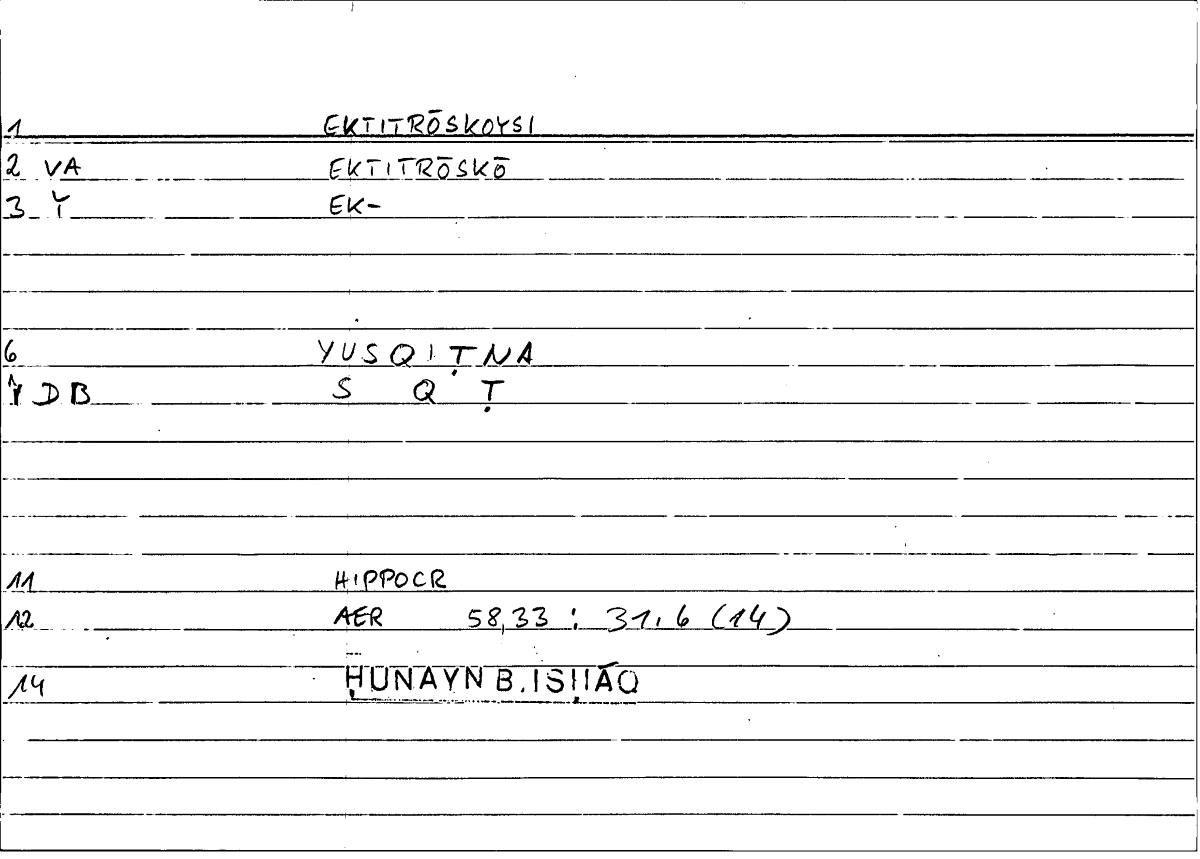 1 EKTITRŌSKOYSI
2 VA EKTITRŌSKŌ
3 Y EK-
6 YUSQIṬNA
DB S Q Ṭ
11 HIPPOCR
12 AER 58,33 : 31,6 (14)
14 ḤUNAYN B. ISḤĀQ